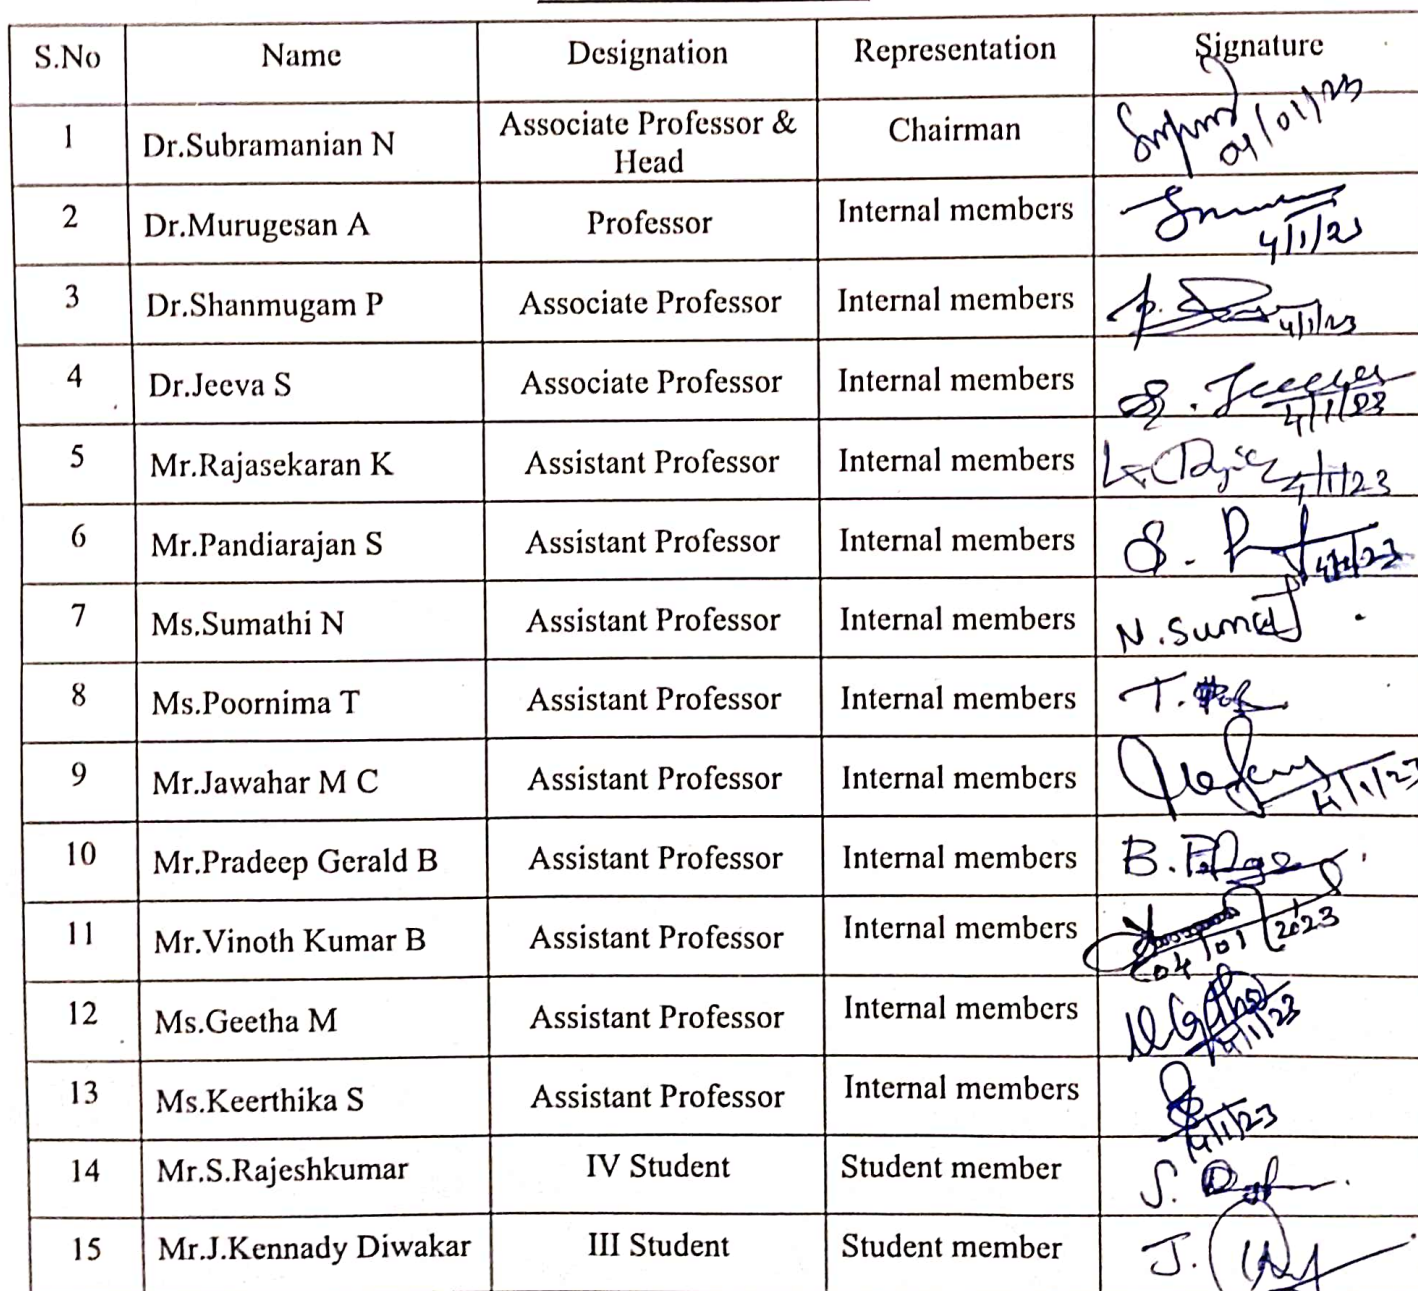 S.No Name Designation Representation Signature
1 Dr.Subramanian N Associate Professor & Head Chairman 04/01/23
2 Dr.Murugesan A Professor Internal members 4/1/23
3 Dr.Shanmugam P Associate Professor Internal members 4/1/23
4 Dr.Jeeva S Associate Professor Internal members S. Jeeva 4/1/23
5 Mr.Rajasekaran K Assistant Professor Internal members 4/1/23
6 Mr.Pandiarajan S Assistant Professor Internal members 4/1/23
7 Ms.Sumathi N Assistant Professor Internal members
8 Ms.Poornima T Assistant Professor Internal members
9 Mr.Jawahar M C Assistant Professor Internal members 4/1/23
10 Mr.Pradeep Gerald B Assistant Professor Internal members
11 Mr.Vinoth Kumar B Assistant Professor Internal members 04/01/2023
12 Ms.Geetha M Assistant Professor Internal members 4/1/23
13 Ms.Keerthika S Assistant Professor Internal members 4/1/23
14 Mr.S.Rajeshkumar IV Student Student member
15 Mr.J.Kennady Diwakar III Student Student member